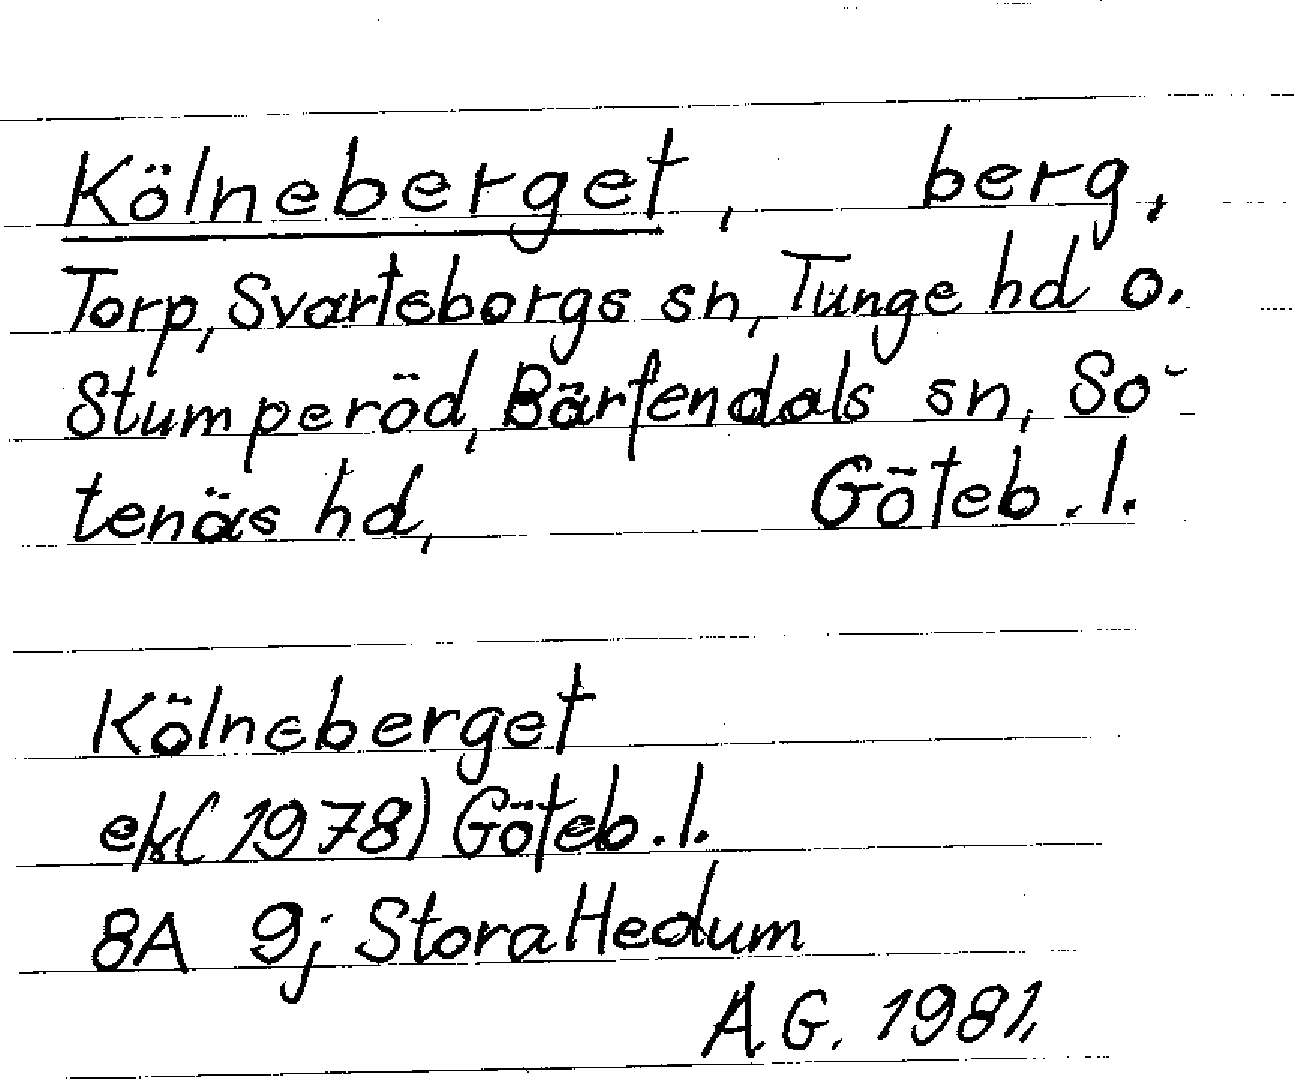 Kölneberget, berg,
Torp, Svarteborgs sn, Tunge hd o.
Stumperöd, Bärfendals sn, So-
tenäs hd, Göteb. l.
Kölneberget
ek (1978) Göteb. l.
8A 9j Stora Hedum
A G. 1981,